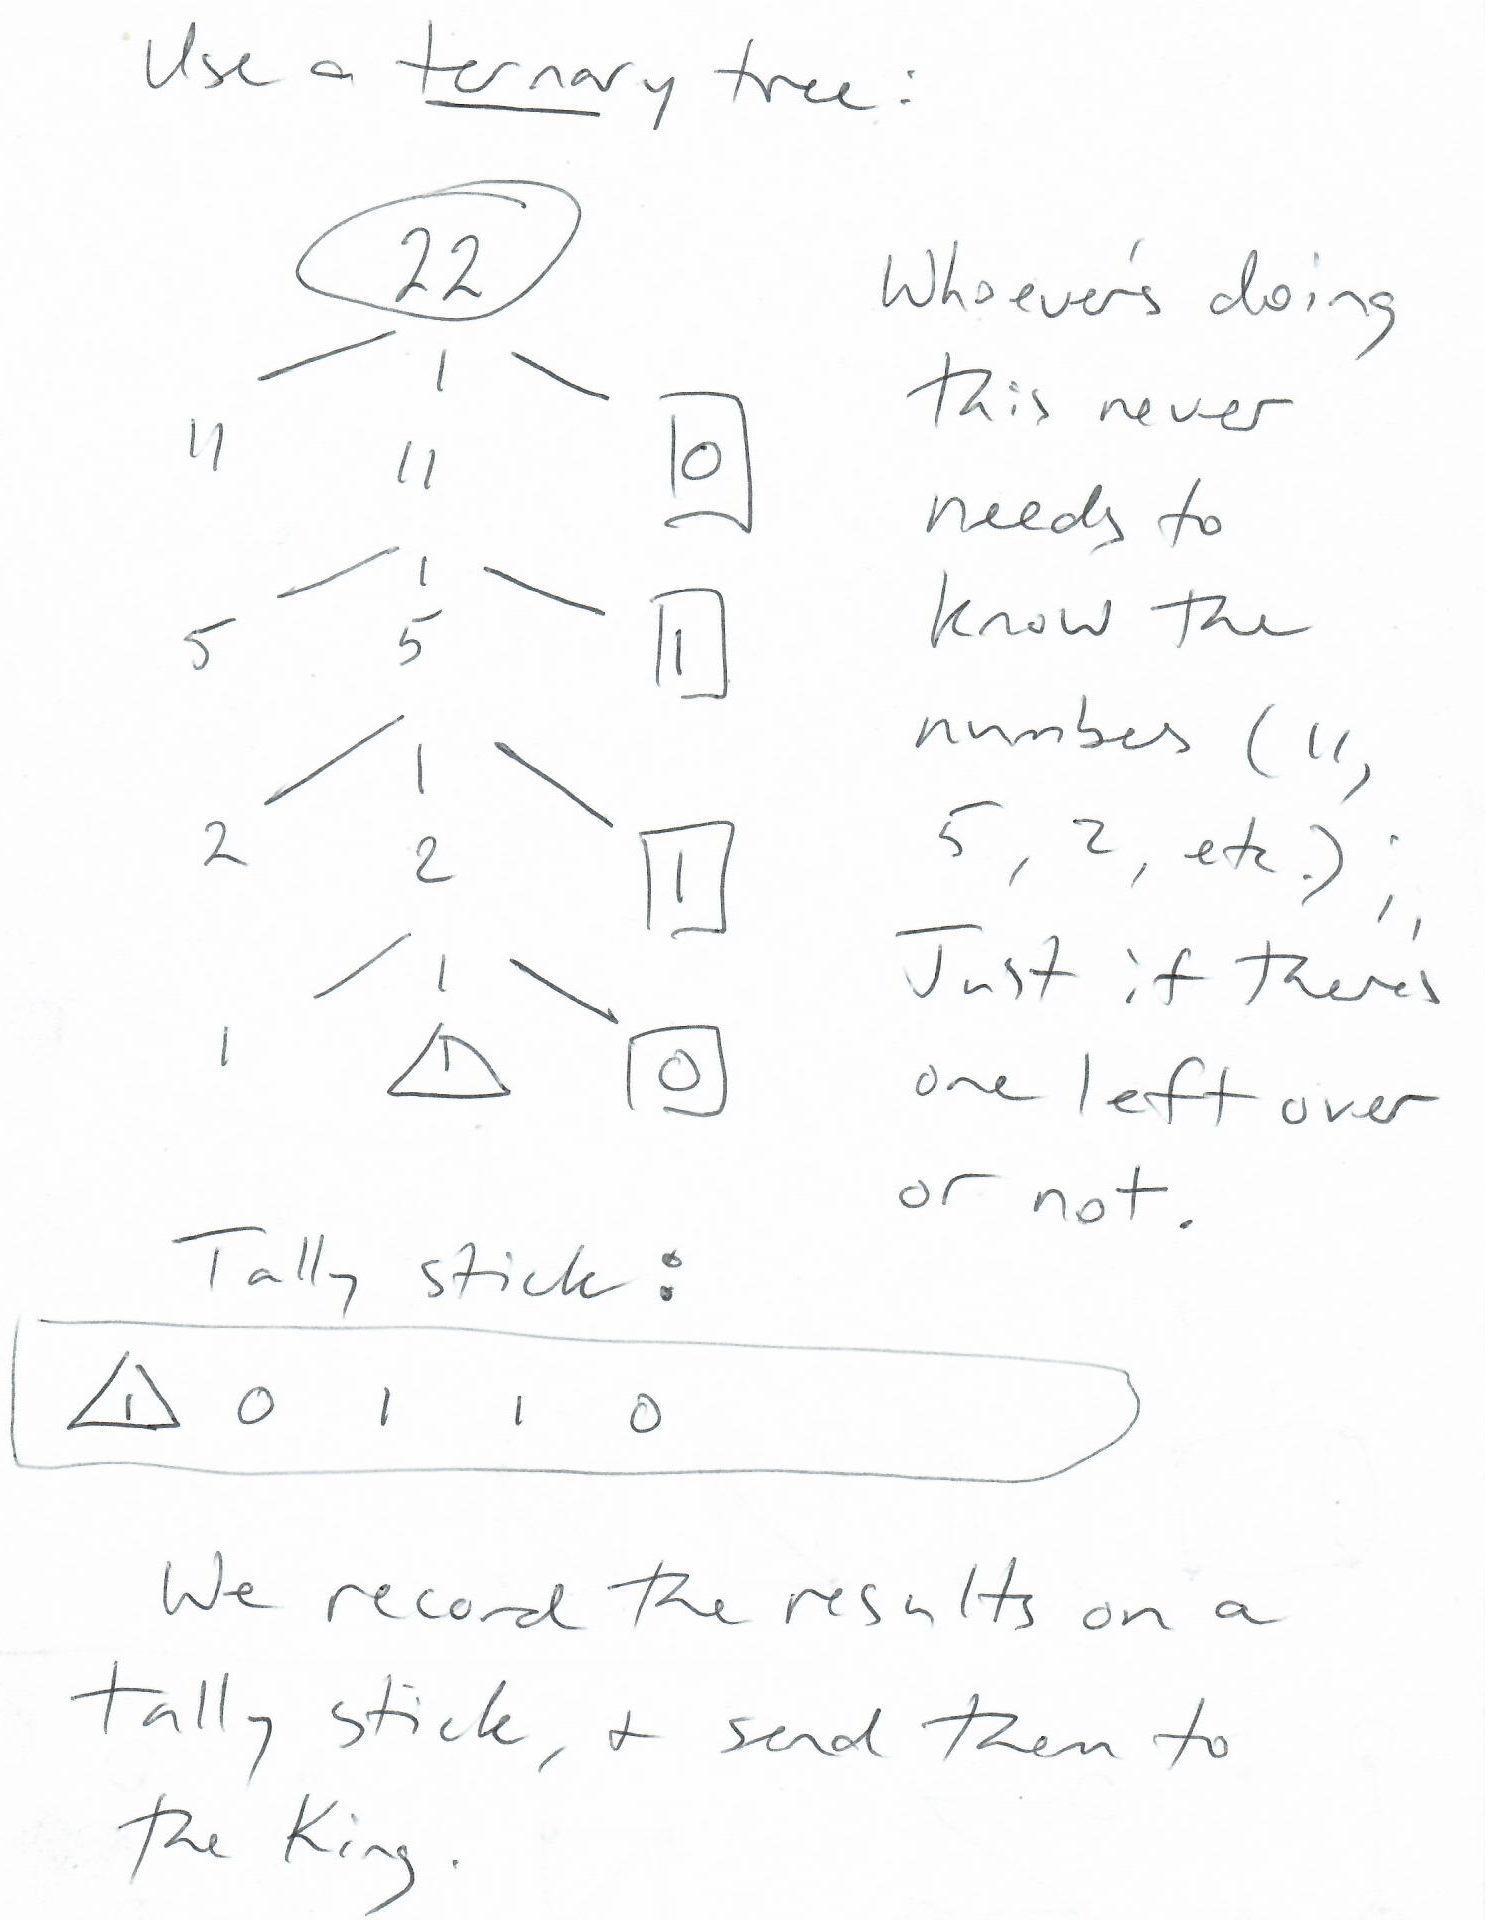 Use a ternary tree:
22
11 11 0
5 5 1
2 2 1
1 1 0
Whoever's doing
this never
needs to
know the
numbers (11,
5, 2, etc.);
Just if there's
one left over
or not.
Tally stick:
1 0 1 1 0
We record the results on a
tally stick, & send them to
the King.